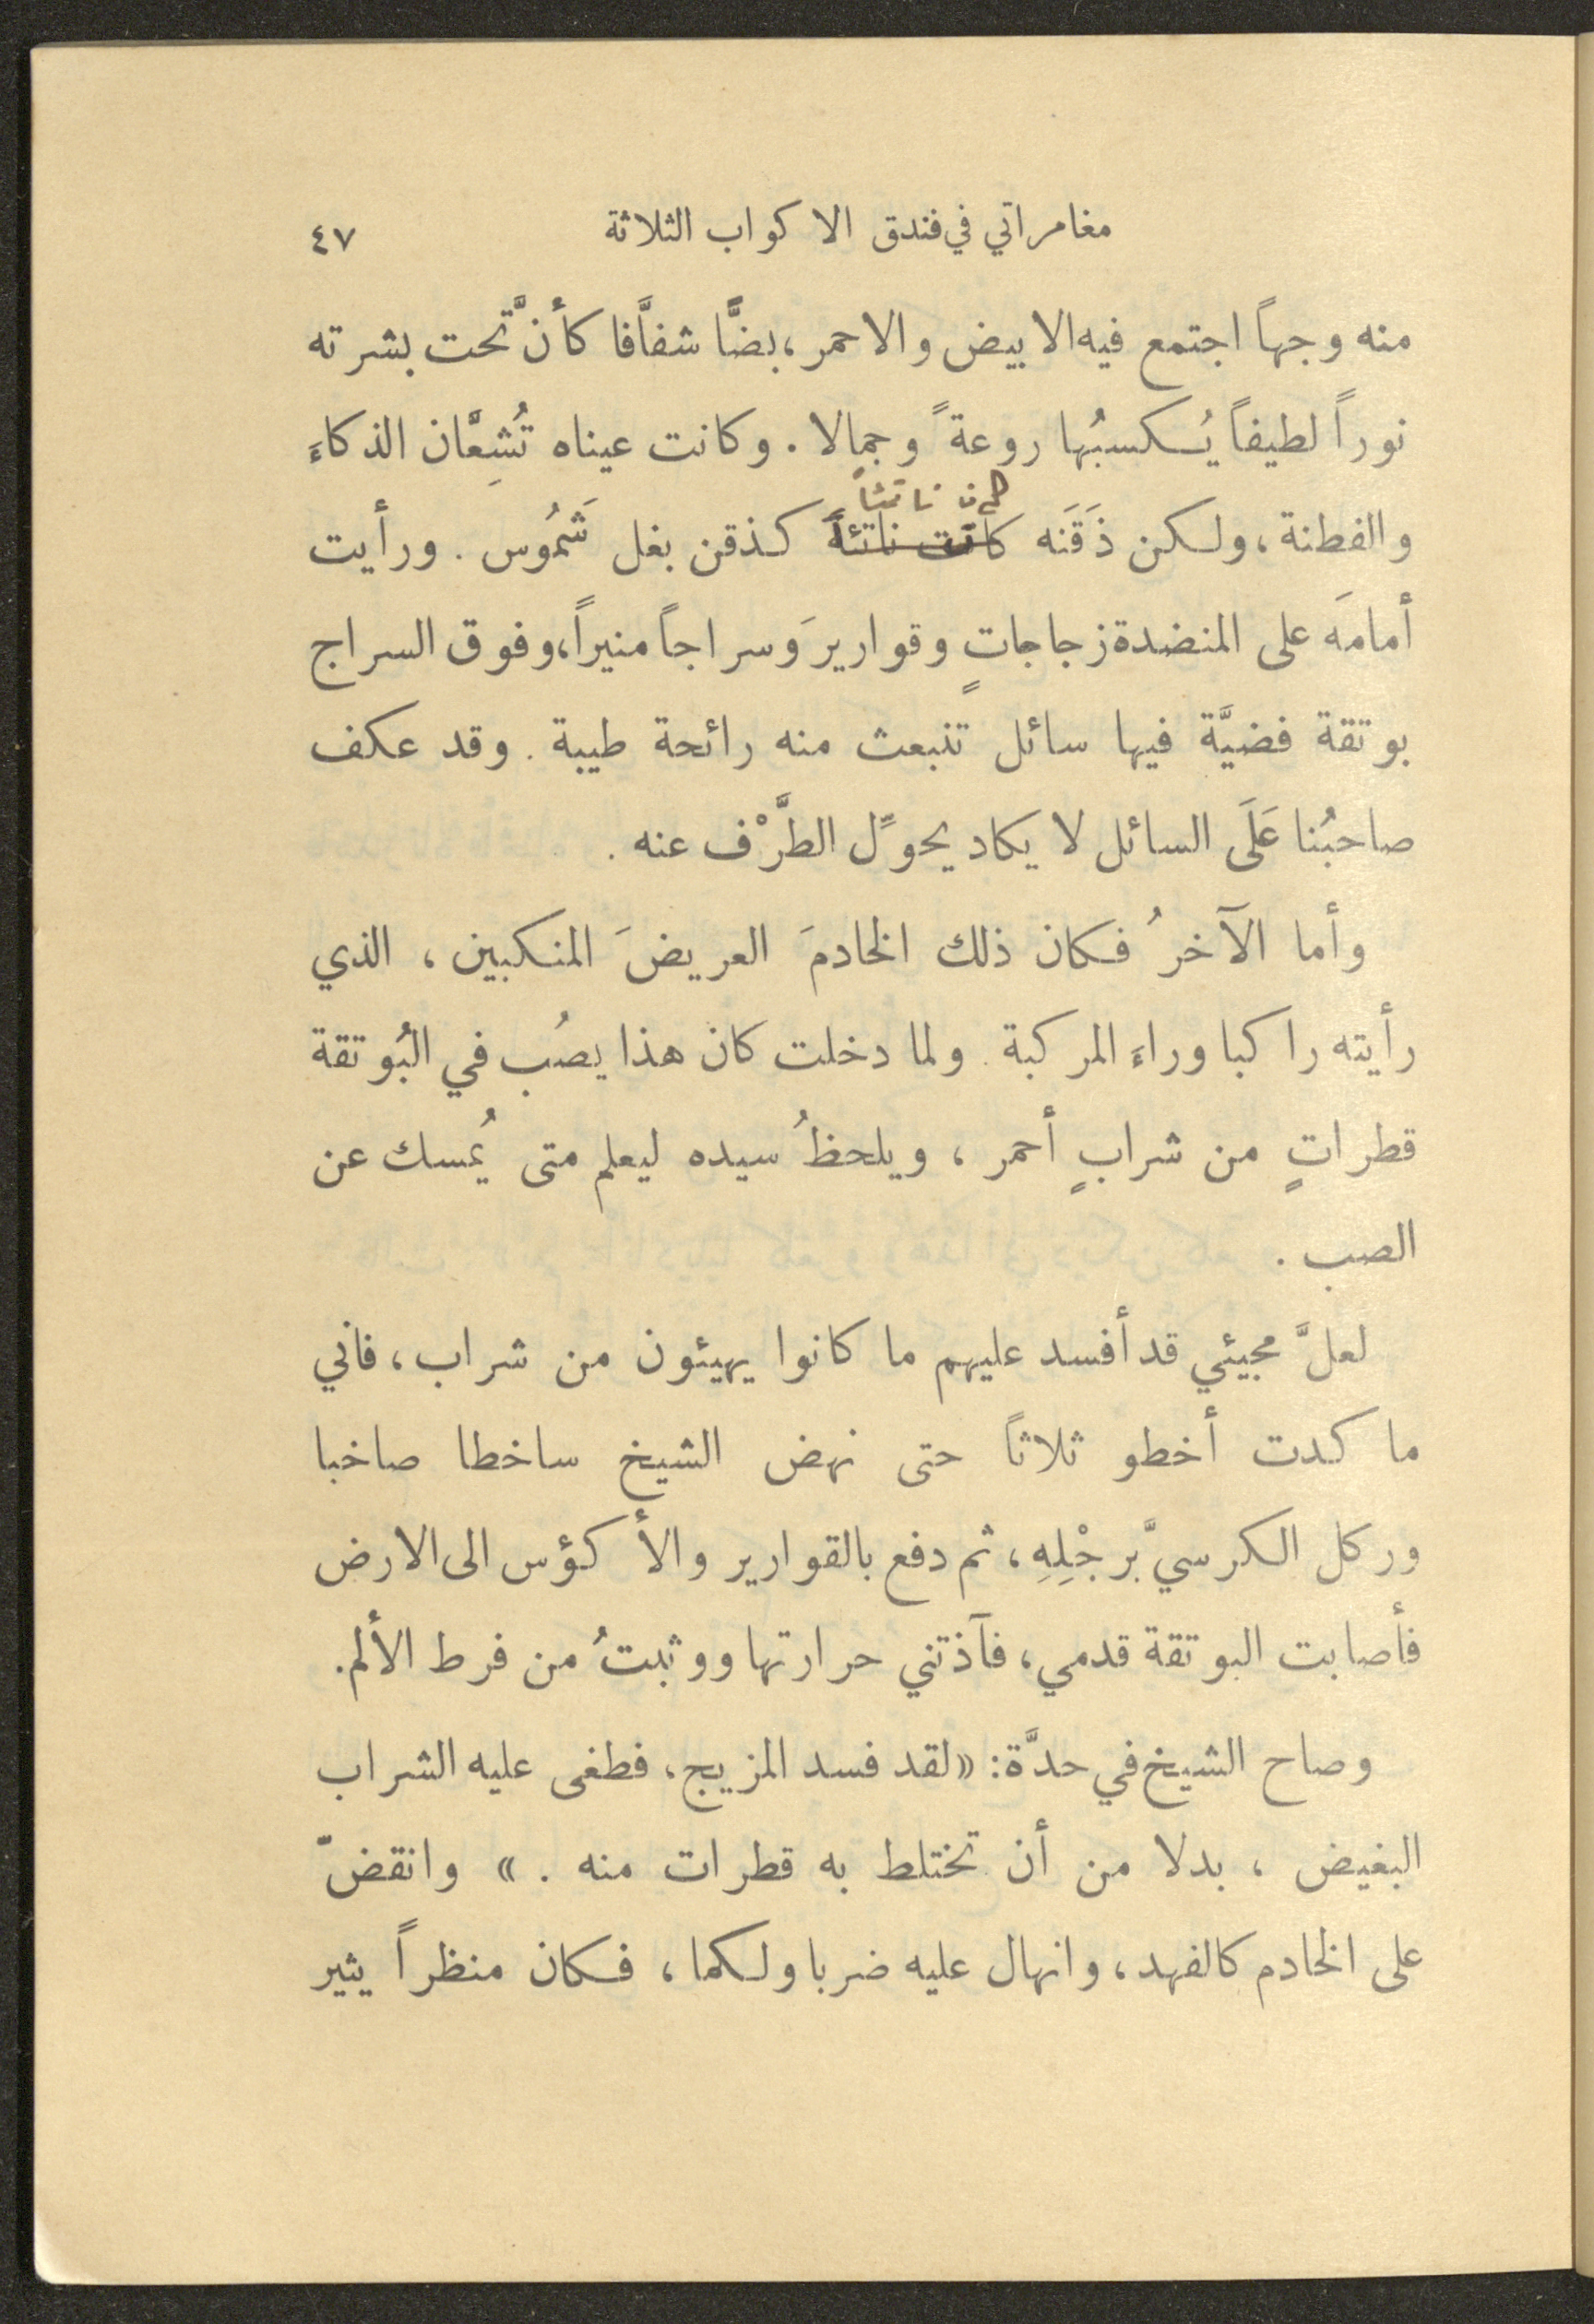 مغامراتي في فندق الاكواب الثلاثة ٤٧
منه وجهاً اجتمع فيه الابيض والاحمر، بضًّا شفاَّفا كأنَّ تحت بشرته
نوراً لطيفاً يُكسبُها روعةً وجمالا. وكانت عيناه تُشِعَّان الذكاءَ
كان ناتئاً
والفطنة، ولكن ذَقَنَه كانت ناتئةً كذقن بغل شَمُوس. ورأيت
أمامَه على المنضدة زجاجاتٍ وقواريرَ وسراجاً منيراً، وفوق السراج
بوتقة فضيَّة فيها سائل تنبعث منه رائحة طيبة. وقد عكف
صاحبُنا عَلَى السائل لا يكاد يحوِّل الطَّرْف عنه.
وأما الآخرُ فكان ذلك الخادمَ العريضَ المنكبين، الذي
رأيته راكبا وراءَ المركبة. ولما دخلت كان هذا يصُب في البُوتقة
قطراتٍ من شرابٍ أحمر، ويلحظُ سيده ليعلم متى يُمسك عن
الصب.
لعلَّ مجيئي قد أفسد عليهم ما كانوا يهيئون من شراب، فاني
ما كدت أخطو ثلاثاً حتى نهض الشيخ ساخطا صاخبا
وركل الكرسيَّ برجْلِهِ، ثم دفع بالقوارير والأكؤس الى الارض
فأصابت البوتقة قدمي، فآذتني حرارتها ووثبتُ من فرط الألم.
وصاح الشيخ في حدَّة: «لقد فسد المزيج، فطغى عليه الشراب
البغيض، بدلا من أن تختلط به قطرات منه.» وانقضّ
على الخادم كالفهد، وانهال عليه ضربا ولكما، فكان منظراً يثير